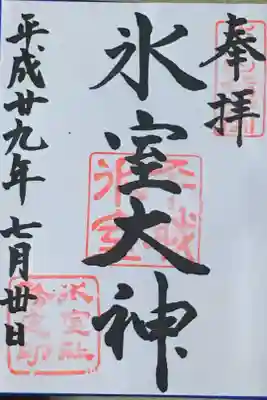 奉拝
氷室大神
平成廿九年七月卅日
氷室社